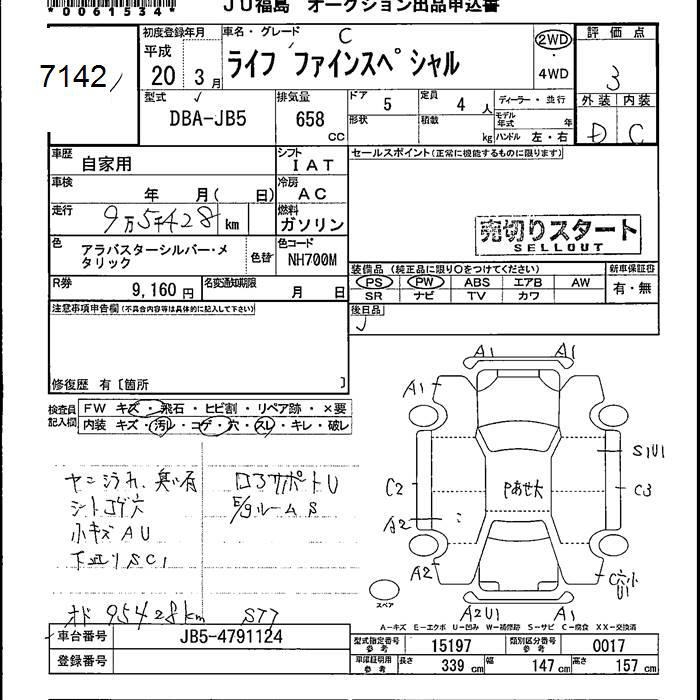 *0061534*
JU福島 オークション出品申込書
7142
初度登録年月
平成
20 3月
車名・グレード
C
ライフ ファインスペシャル
2WD
4WD
評価点
3
外装 内装
D C
型式
DBA-JB5
排気量
658
CC
ドア
5
定員
4 人
形状
積載
kg
ディーラー・並行
モデル年式 年
ハンドル 左・右
車歴
自家用
シフト
IAT
セールスポイント(正常に機能するものに限ります)
車検
年 月( 日)
冷房
AC
走行
9万5千428 km
燃料
ガソリン
売切りスタート
SELLOUT
色
アラバスターシルバー・メタリック
色替
色コード
NH700M
装備品(純正品に限り○をつけてください)
新車保証書
PS PW ABS エアB AW
SR ナビ TV カワ
有・無
R券
9,160 円
名変通知期限
月 日
後日品
注意事項申告欄(不具合内容等は具体的に記入して下さい)
修復歴 有〔箇所 〕
検査員記入欄
FW キズ・飛石・ヒビ割・リペア跡・×要
内装 キズ・汚レ・コゲ・穴・スレ・キレ・破レ
シートコゲ穴
小キズAU
オド 95428km
A1 A1
A1
S1U1
C2
Pあせ大
C3
A2
A2
C穴小
U1
A2U1 A1
スペア
A-キズ E-エクボ U-凹み W-補修跡 S-サビ C-腐食 XX-交換済
車台番号
JB5-4791124
登録番号
型式指定番号 参考
15197
類別区分番号 参考
0017
車庫証明用 参考
長さ 339 cm 幅 147 cm 高さ 157 cm